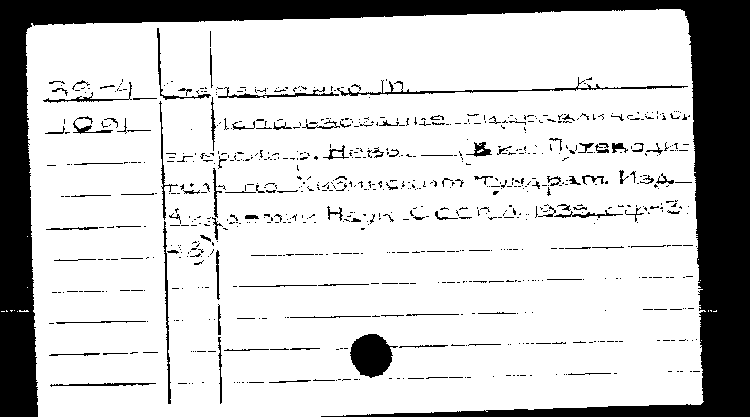 38-4 Степанченко М. К.
1001 Использование гидравлической
энергии р. Невы. (В кн. Путеводи-
тель по Хибинским тундрам. Изд.
Академии Наук СССР Л. 1938, стр.